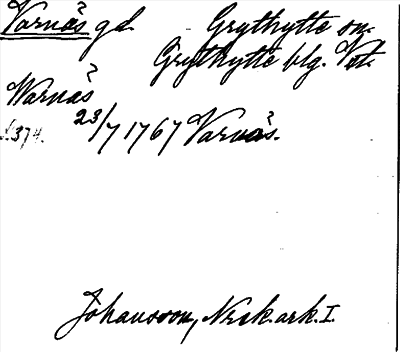 Varnås gd. Grythytte sn.
Grythytte blg. Vstl.
Warnås
£374. 23/7 1767 Varnås.
Johansson, Nrsk.ark. I.